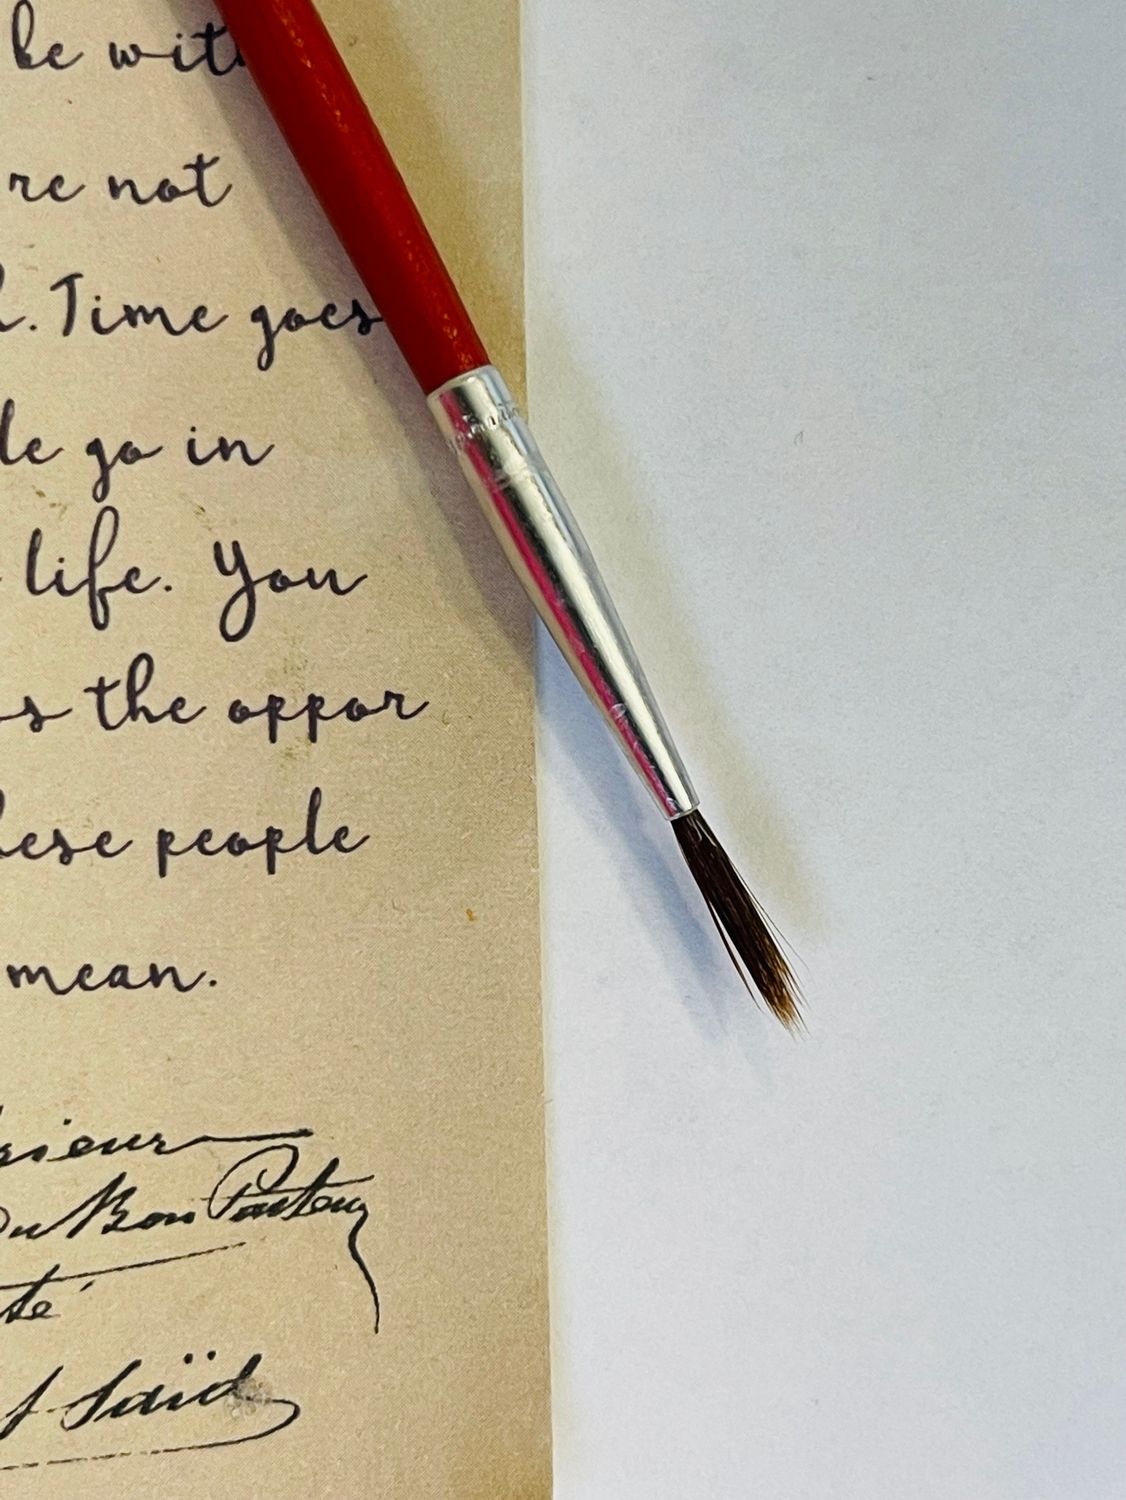 be with
re not
. Time goes
le go in
life. You
s the oppor
hese people
mean.
sieur
Du Bon Pasteur
té
Saïd